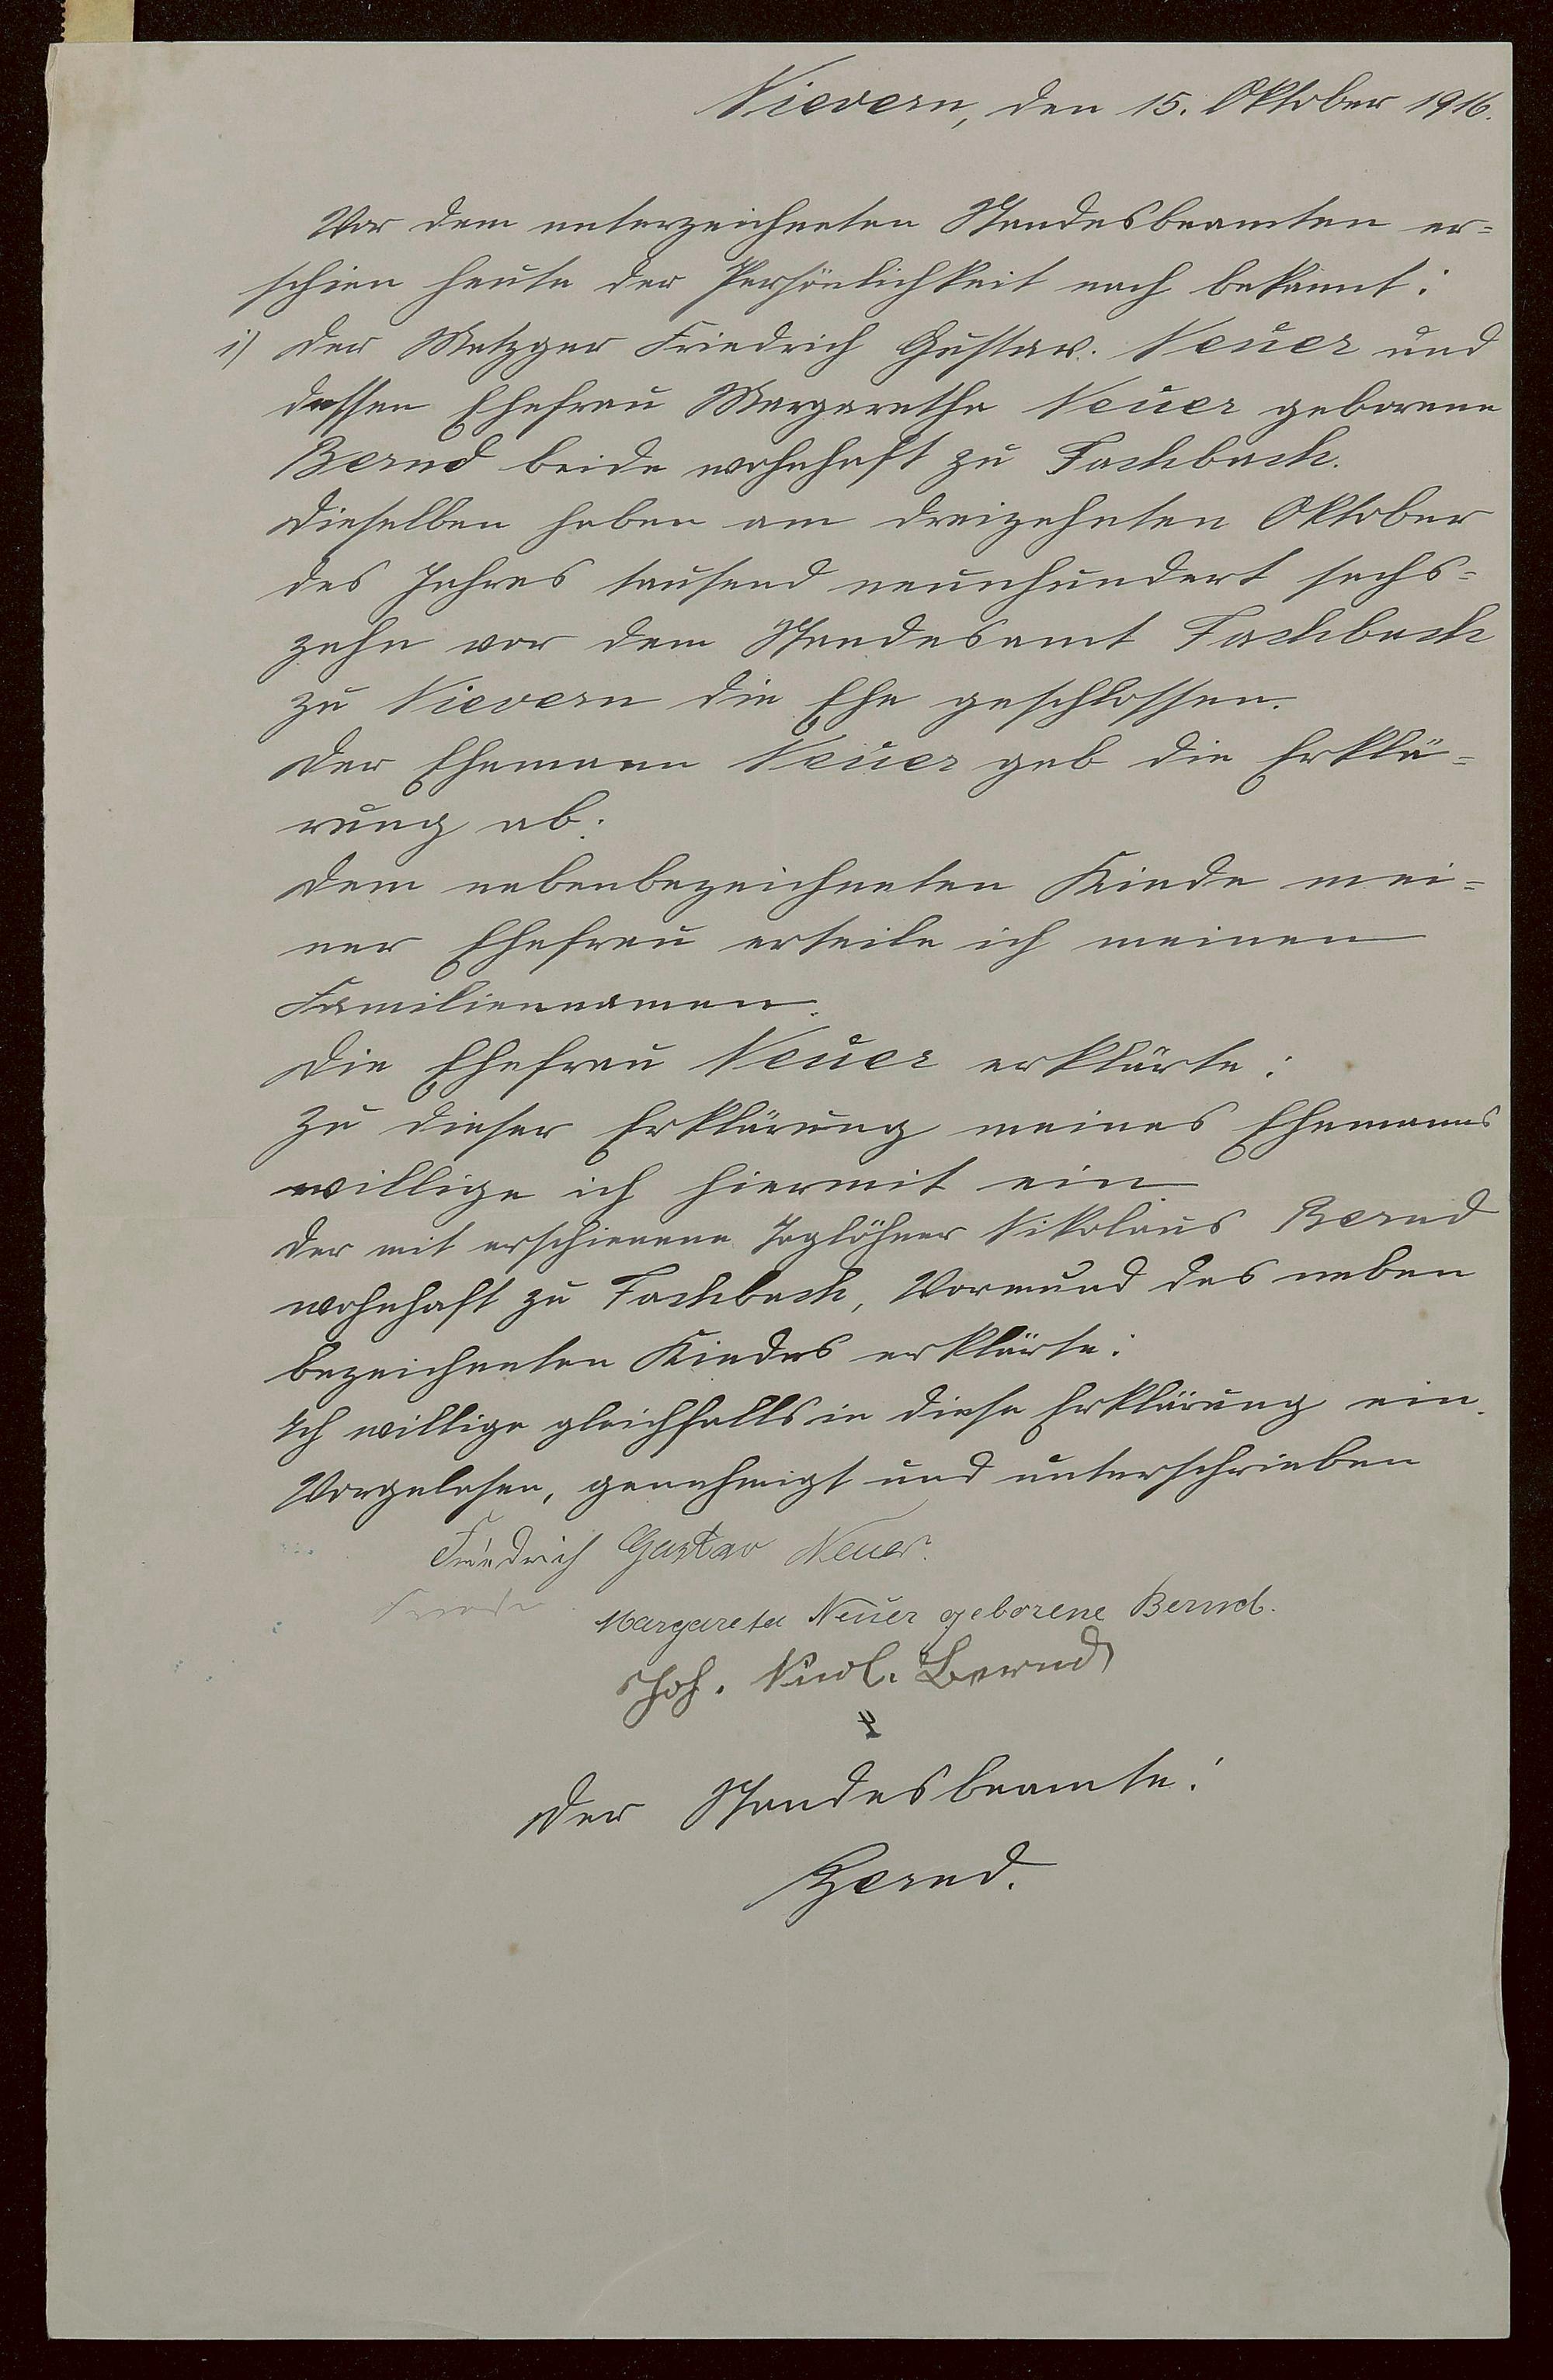 Nievern, den 15. Oktober 1916.
Vor dem unterzeichneten Standesbeamten er=
schien heute der Persönlichkeit nach bekannt:
1) der Metzger Friedrich Gustav. Neuer und
dessen Ehefrau Margaretha Neuer geborene
Bernd beide wohnhaft zu Fachbach.
Dieselben haben am dreizehnten Oktober
des Jahres tausend neunhundert sechs=
zehn vor dem Standesamt Fachbach
zu Nievern die Ehe geschlossen.
Der Ehemann Neuer gab die Erklä=
rung ab:
Dem nebenbezeichneten Kinde mei=
ner Ehefrau erteile ich meinen
Familiennamen.
Die Ehefrau Neuer erklärte:
Zu dieser Erklärung meines Ehemanns
willige ich hiermit ein
Der mit erschienene Taglöhner Nikolaus Bernd
wohnhaft zu Fachbach, Vormund des neben
bezeichneten Kindes erklärte:
Ich willige gleichfalls in diese Erklärung ein.
Vorgelesen, genehmigt und unterschrieben
Friedrich Gustav Neuer.
Margareta Neuer geborene Bernd.
Joh. Bernd
Der Standesbeamte:
Bernd.